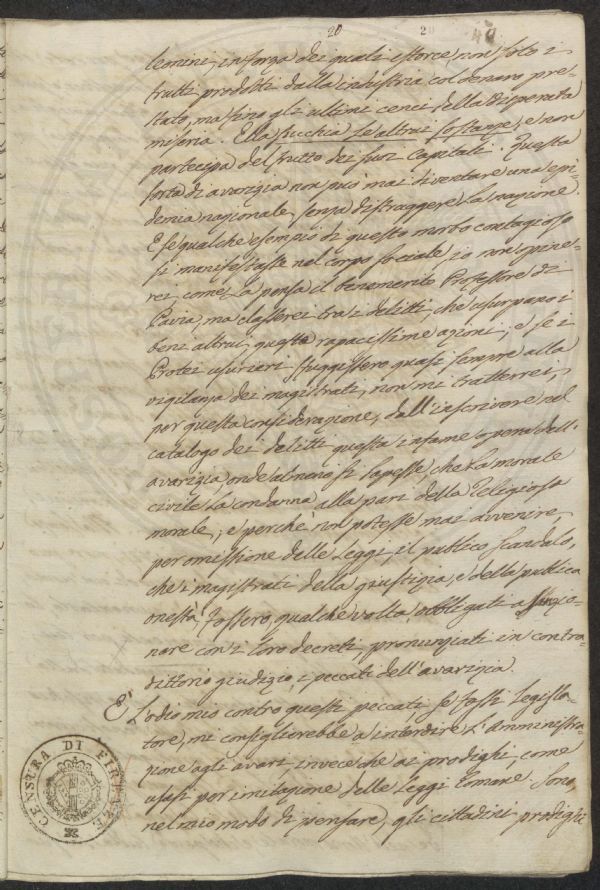 20 20 40
temini, in forza dei quali estorce, non solo i
frutti prodotti dalla industria col denaro pre=
stato, ma fino gli ultimi cenci della disperata
miseria. Ella succhia le altrui sostanze, e non
partecipa del frutto dei suoi capitali. Questa
sorta di avarizia non può mai diventare una epi=
demia nazionale, senza distruggere la nazione.
E se qualche esempio di questo morbo contagioso
si manifestasse nel corpo sociale, io non opine=
rei, come la pensa il benemerito Professore di
Pavia, ma classerei tra i delitti, che usurpano i
beni altrui, queste rapacissime azioni; e se i
Protei usurieri sfuggissero quasi sempre alla
vigilanza dei magistrati, non mi tratterrei,
per questa considerazione, dall'inscrivere nel
catalogo dei delitti questa infame opera dell'
avarizia, onde almeno si sapesse, che la morale
civile la condanna alla pari della religiosa
morale; e perchè non potesse mai avvenire,
per omissione delle leggi, il publico scandalo,
che i magistrati della giustizia, e della publica
onestà fossero qualche volta obbligati a sanzio=
nare con i loro decreti, pronunziati in contra=
dittorio giudizio, i peccati dell'avarizia.
È L'odio mio contro questi peccati, se fossi legisla=
tore, mi consiglierebbe a interdire l'amministra=
zione agli avari invece che ai prodighi, come
usasi per imitazione delle leggi Romane. Sono,
nel mio modo di pensare, gli cittadini prodighi
CENSURA DI FIRENZE